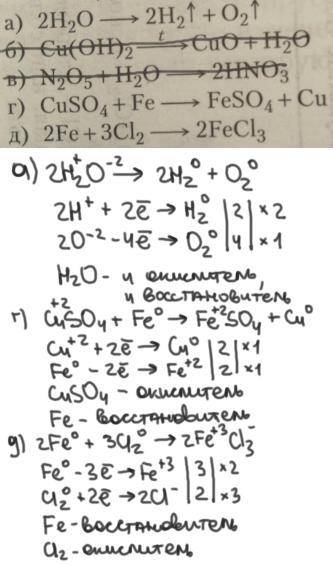 а) 2H₂O ⟶ 2H₂↑ + O₂↑
б) Cu(OH)₂ ⟶ᵗ CuO + H₂O
в) N₂O₅ + H₂O ⟶ 2HNO₃
г) CuSO₄ + Fe ⟶ FeSO₄ + Cu
д) 2Fe + 3Cl₂ ⟶ 2FeCl₃
а) 2H₂⁺O⁻² → 2H₂⁰ + O₂⁰
2H⁺ + 2ē → H₂⁰ | 2 | ×2
2O⁻² - 4ē → O₂⁰ | 4 | ×1
H₂O - и окислитель,
и восстановитель
г) Cu⁺²SO₄ + Fe⁰ → Fe⁺²SO₄ + Cu⁰
Cu⁺² + 2ē → Cu⁰ | 2 | ×1
Fe⁰ - 2ē → Fe⁺² | 2 | ×1
CuSO₄ - окислитель
Fe - восстановитель
д) 2Fe⁰ + 3Cl₂⁰ → 2Fe⁺³Cl₃⁻
Fe⁰ - 3ē → Fe⁺³ | 3 | ×2
Cl₂⁰ + 2ē → 2Cl⁻ | 2 | ×3
Fe - восстановитель
Cl₂ - окислитель